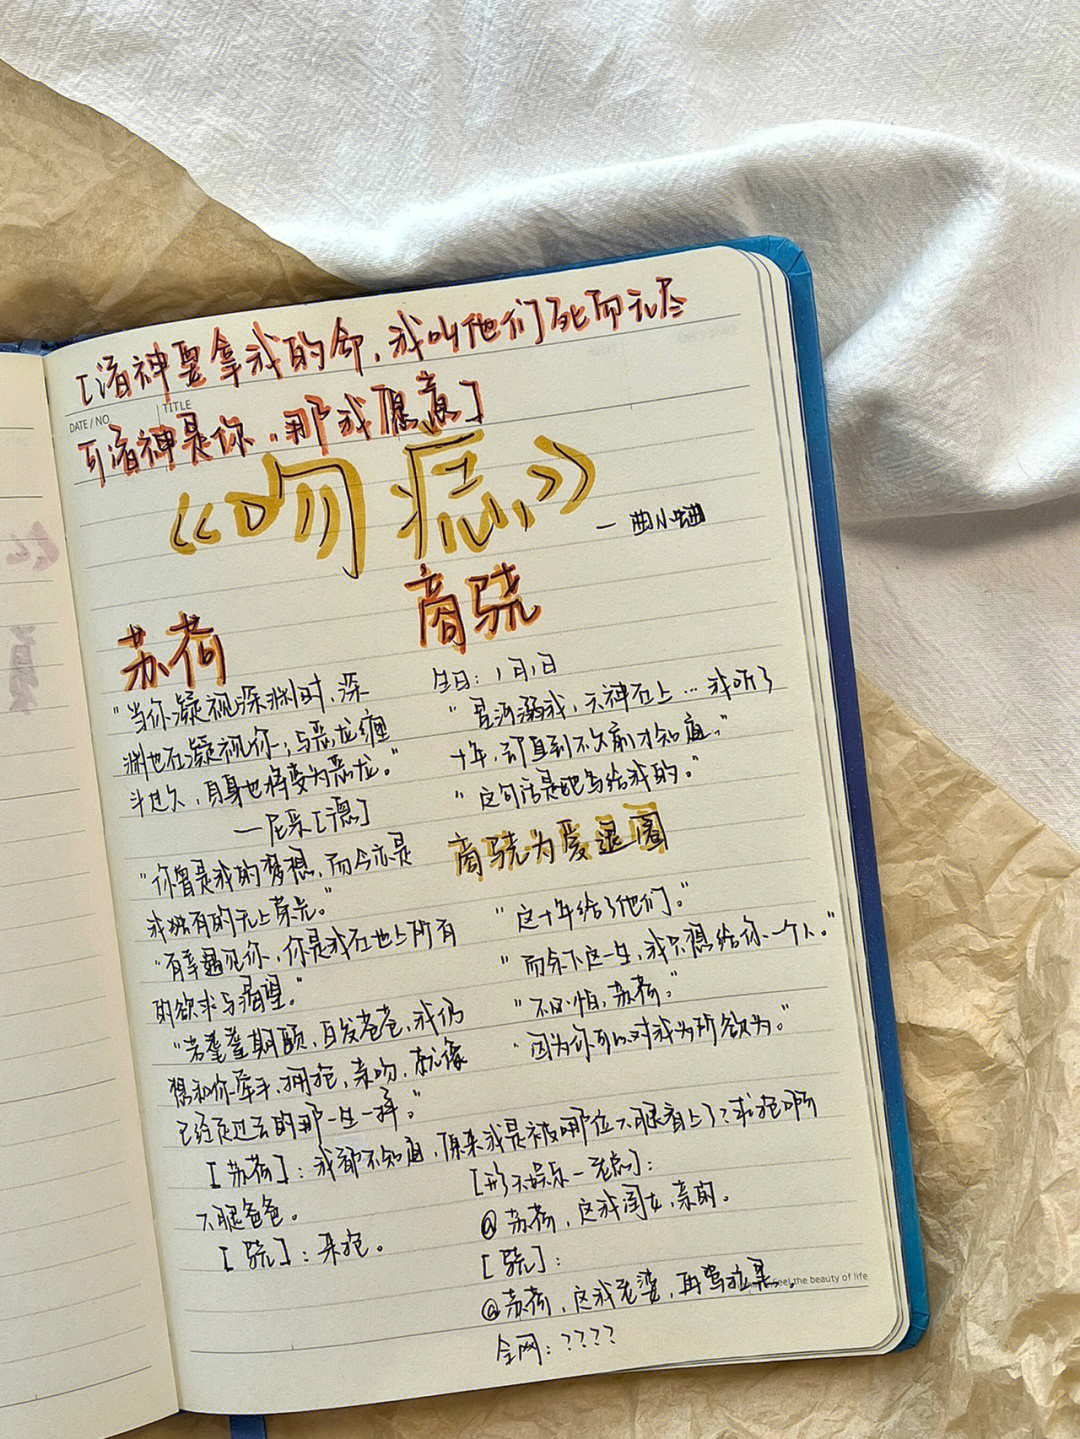 [诸神要拿我的命，我叫他们死而无尽
DATE / NO.
TITLE
可诸神是你，那我愿意]
《吻痣》
—曲小蛐
苏荷
"当你凝视深渊时，深
渊也在凝视你；与恶龙缠
斗过久，自身也将变为恶龙。"
—尼采[德]
"你曾是我的梦想，而今亦是
我独有的无上荣光。"
"有幸遇见你，你是我在世上所有
的欲求与渴望。"
"若耄耋期颐，白发苍苍，我仍
想和你牵手、拥抱，亲吻，就像
已经走过去的那一生一样。"
商骁
生日：1月1日
"星河溺我，六神在上…我听了
十年，却直到不久前才知道，"
"这句话是她写给我的。"
商骁为爱退圈
"这十年给了他们。"
"而余下这一生，我只想给你一个人。"
"不必怕，苏荷。"
"因为你可以对我为所欲为。"
[苏荷]：我都不知道，原来我是被哪位大腿看上了？求抱啊
大腿爸爸。
[骁]：来抱。
娱乐
@苏荷，这我闺女，亲的。
[骁]：
@苏荷，这我老婆，再骂拉黑。
feel the beauty of life
全网：????